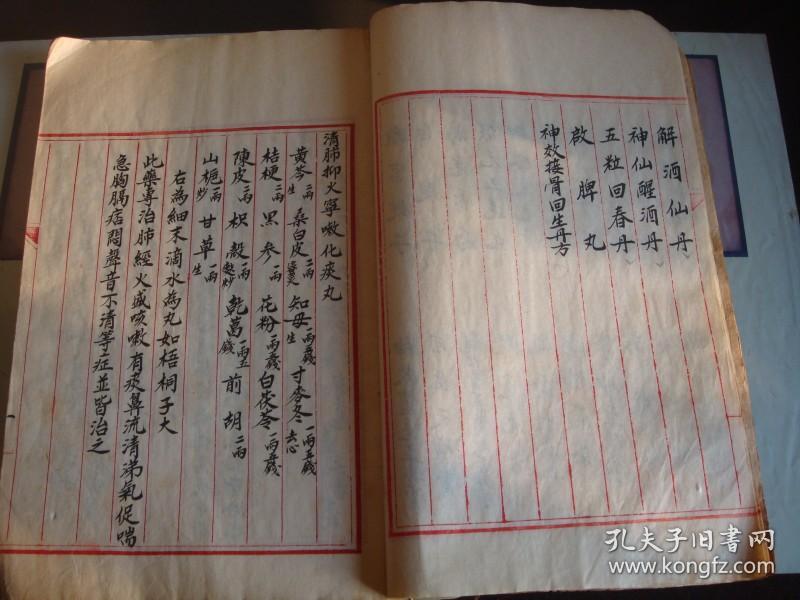 解酒仙丹
神仙醒酒丹
五粒回春丹
啟脾丸
神效接骨回生丹方
清肺抑火寧嗽化痰丸
黃芩二兩生 桑白皮二兩蜜炙 知母一兩五錢生 寸麥冬一兩五錢去心
桔梗二兩 黑參一兩 花粉一兩五錢 白茯苓一兩五錢
陳皮二兩 枳殼一兩麩炒 乾葛一兩五錢 前胡二兩
山梔一兩炒 甘草一兩生
右為細末滴水為丸如梧桐子大
此藥專治肺經火盛咳嗽有痰鼻流清涕氣促喘
急胸膈痞悶聲音不清等症並皆治之
孔夫子旧书网
www.kongfz.com